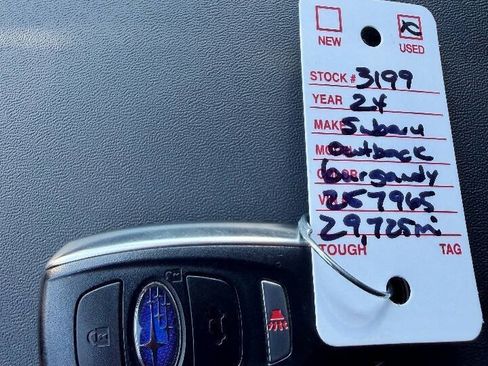 NEW USED
STOCK # 3199
YEAR 24
MAKE Subaru
MODEL Outback
COLOR burgandy
257965
29,725mi
TOUGH TAG